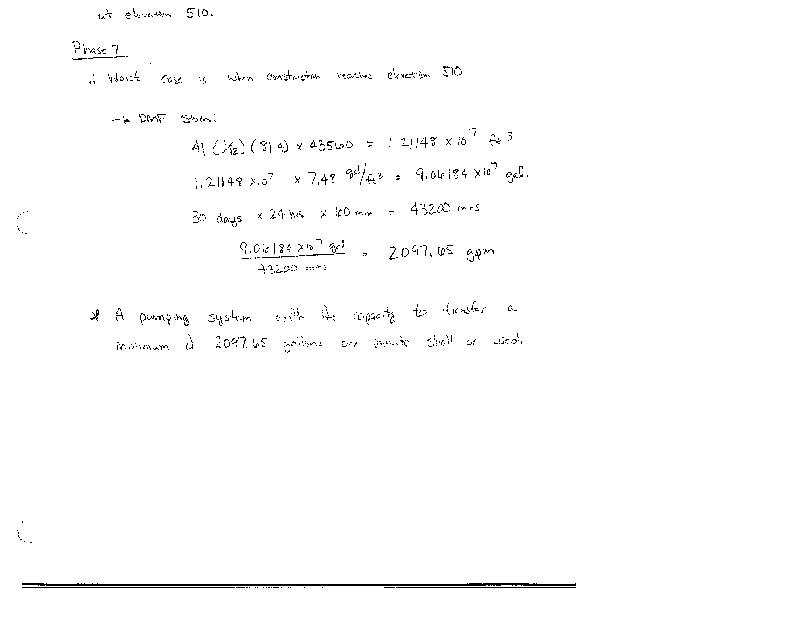 at elevation 510.
Phase 7
∴ Worst case is when construction reaches elevation 510
→ PMF Storm:
41 (1/12) (81.4) x 43560 = 1.21148 x 10^7 ft^3
1.21148 x 10^7 x 7.48 gal/ft^3 = 9.06184 x 10^7 gal.
30 days x 24 hrs x 60 min = 43200 mins
9.06184 x 10^7 gal
43200 mins
= 2097.65 gpm
* A pumping system with the capacity to transfer a
minimum of 2097.65 gallons per minute shall be used.